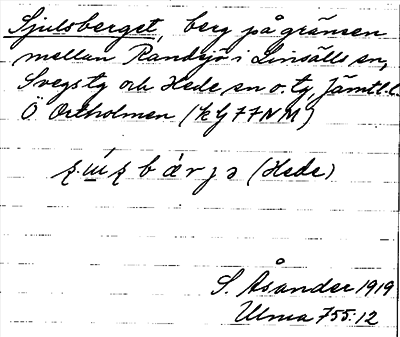 Sjulsberget, berg på gränsen
mellan Randsjö i Linsälls sn,
Svegs tg och Hede sn o. tg Jämtl. l.
Ö Ortholmen (k G 77 N M)
(Hede)
S. Åsander 1919
Ulma 755:12